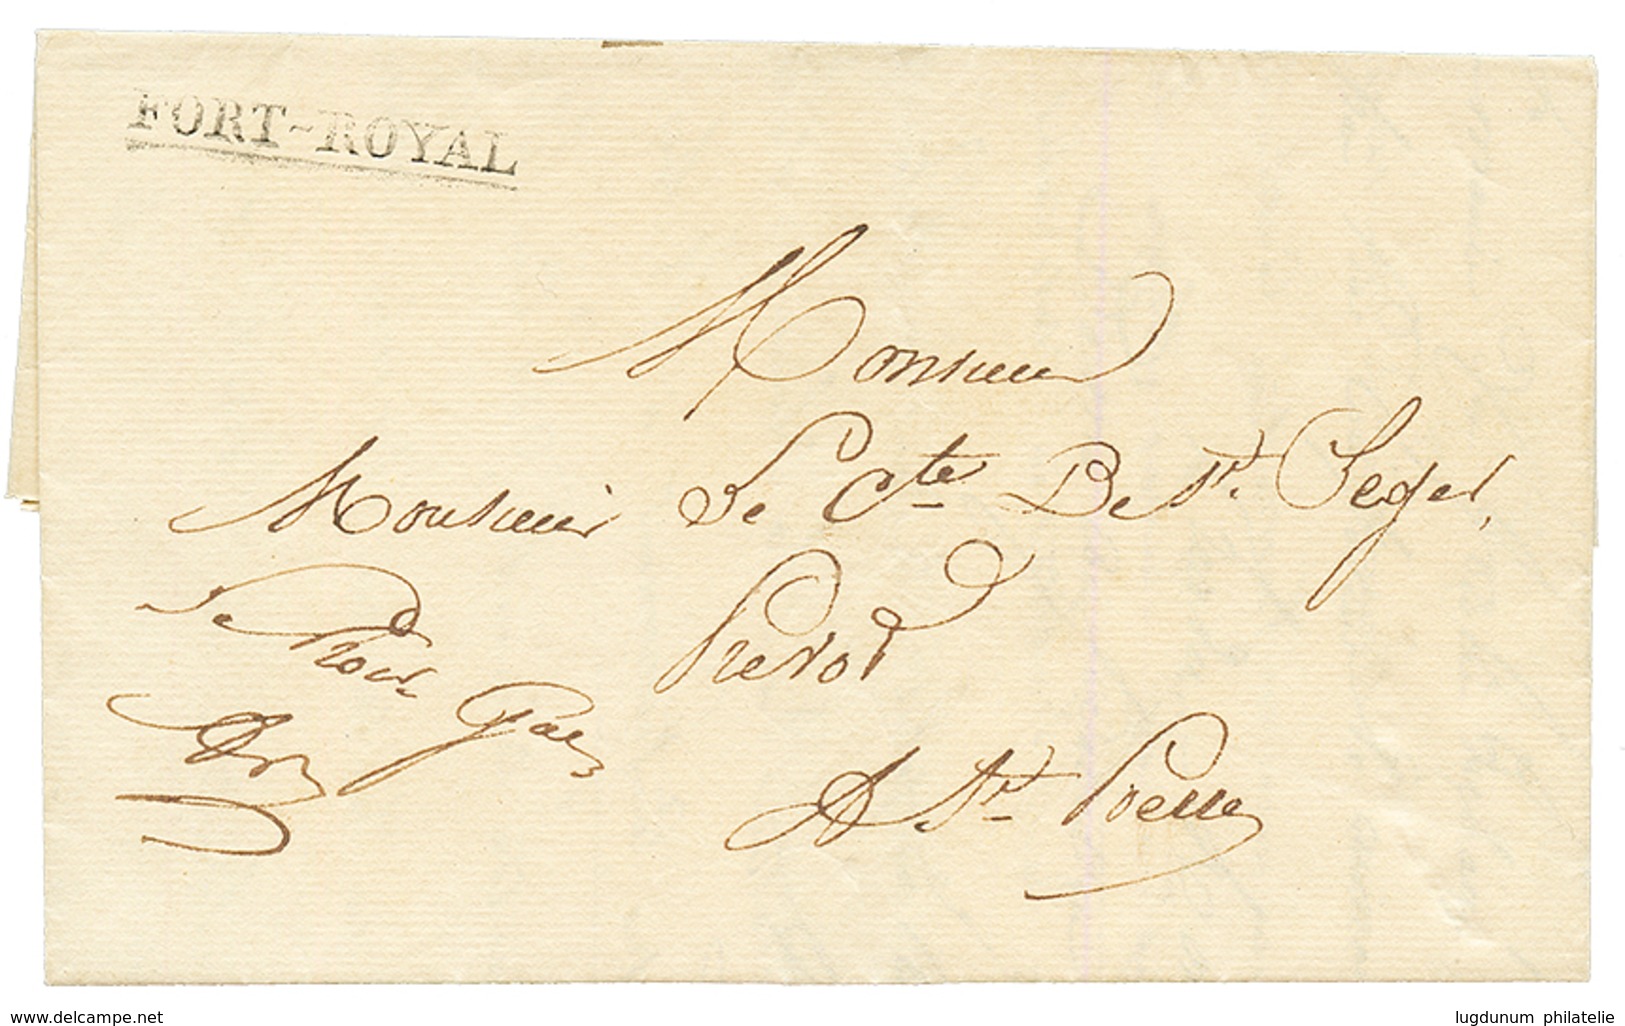 FORT-ROYAL
Monsieur
Monsieur Le Cte De St. Leger,
Prevot
A St. Pierre
www.delcampe.net
lugdunum philatelie